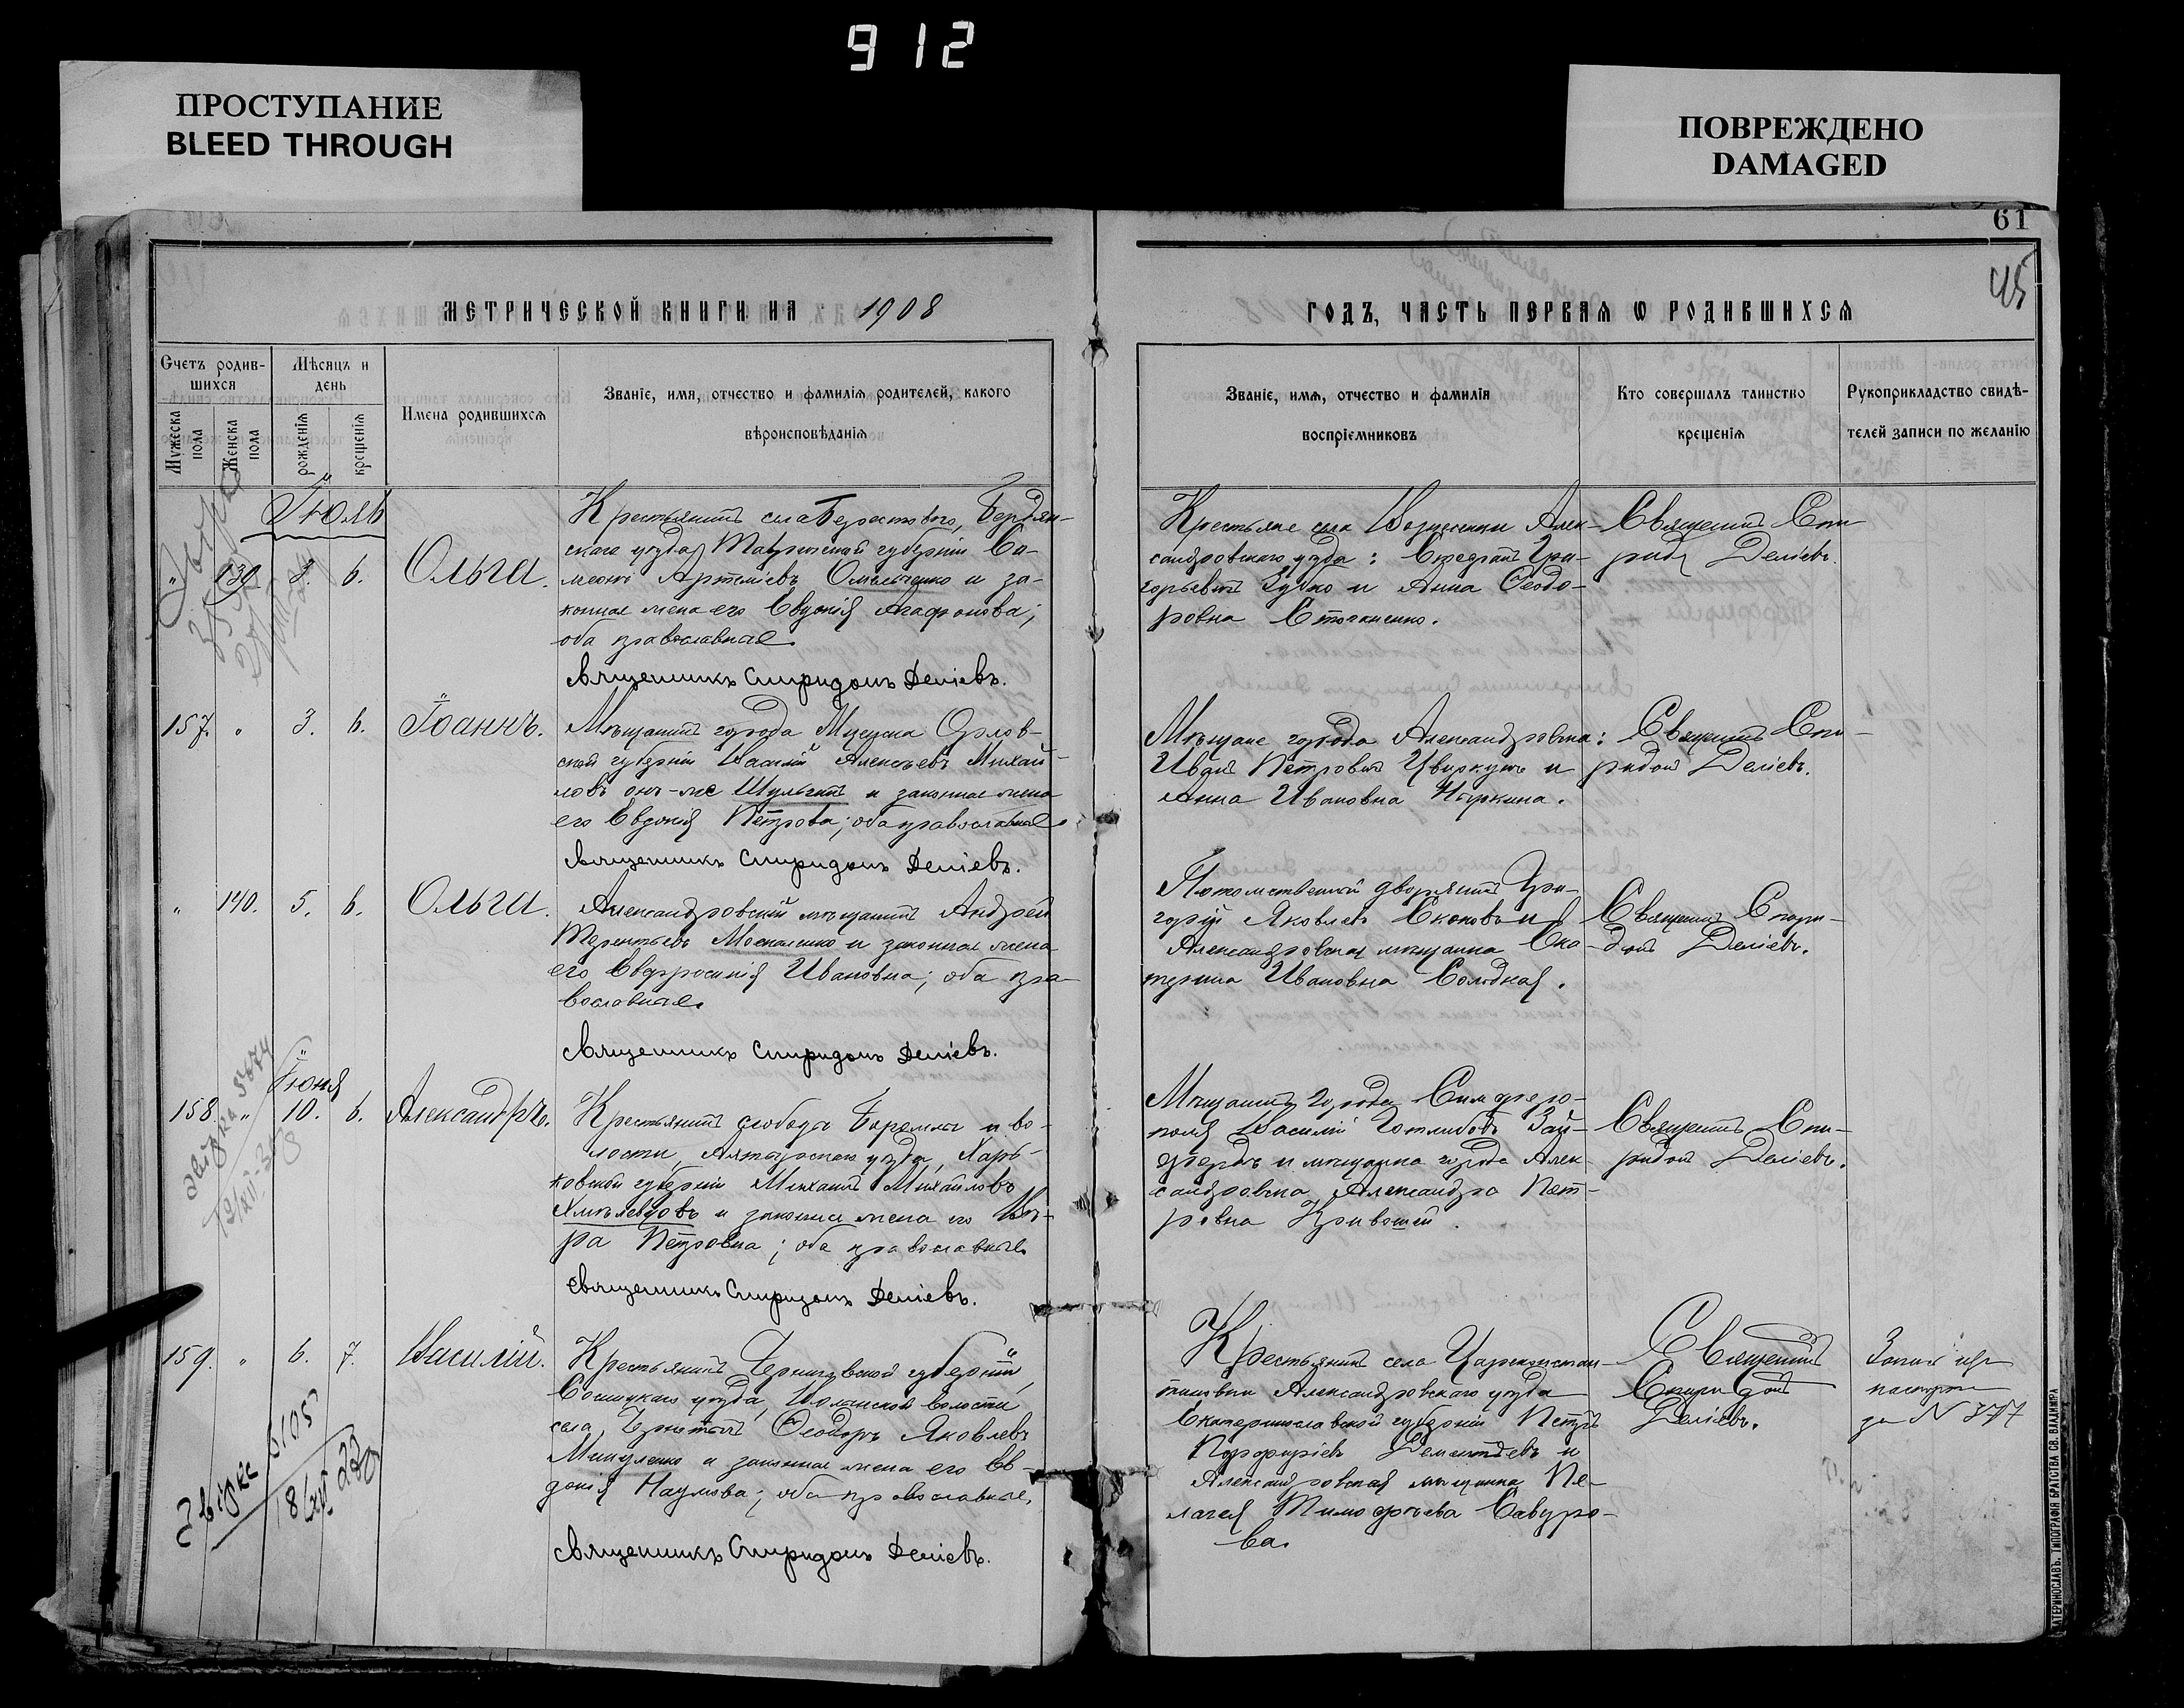 912
ПРОСТУПАНИЕ
BLEED THROUGH
ПОВРЕЖДЕНО
DAMAGED
61
45
МЕТРИЧЕСКОЙ КНИГИ НА 1908
ГОДЪ, ЧАСТЬ ПЕРВАЯ Ѡ РОДИВШИХСЯ
Счетъ родив-
шихся
Мужеска пола
Женска пола
Мѣсяцъ и
день
рожденія
крещенія
Имена родившихся
Званіе, имя, отчество и фамилія родителей, какого
вѣроисповѣданія
Званіе, имя, отчество и фамилія
воспріемниковъ
Кто совершалъ таинство
крещенія
Рукоприкладство свидѣ-
телей записи по желанію
Іюль
" 139. 3. 6. Ольга.
Крестьянинъ села Берестового, Бердян-
скаго уѣзда Таврической губерніи
Артеміевъ Омельченко и за-
конная жена его Евдокія Агафонова;
оба православные
Священникъ Спиридонъ Деліевъ.
Крестьяне села Вознесенки Алек-
сандровскаго уѣзда: Гри-
горьевъ и Анна Ѳеодо-
ровна
Священникъ Спи-
ридонъ Деліевъ.
157. " 3. 6. Іоаннъ.
Мѣщанинъ города Мценска Орлов-
ской губерніи Василій Алексѣевъ Михай-
ловъ онъ-же Шульгинъ и законная жена
его Евдокія Петрова; оба православные.
Священникъ Спиридонъ Деліевъ.
Мѣщане города Александровска:
Иванъ Петровичъ Цвиркунъ и
Анна Ивановна
Священникъ Спи-
ридонъ Деліевъ.
" 140. 5. 6. Ольга.
Александровскій мѣщанинъ Андрей
Терентьевъ Москаленко и законная жена
его Евфросинія Ивановна; оба пра-
вославные.
Священникъ Спиридонъ Деліевъ.
Потомственный дворянинъ Гри-
горій Яковлевъ и
Александровская мѣщанка Ека-
терина Ивановна Солодкая.
Священникъ Спири-
донъ Деліевъ.
Іюня
158. " 10. 6. Александръ.
Крестьянинъ слободы Боромли и во-
лости, Ахтырскаго уѣзда, Харь-
ковской губерніи Михаилъ Михайловъ
Хмѣлевцовъ и законная жена его Вѣ-
ра Петровна; оба православные
Священникъ Спиридонъ Деліевъ.
Мѣщанинъ города Симферо-
поля Василій Готлибовъ Зай-
фердъ и мѣщанка города Алек-
сандровска Александра Пет-
ровна Кривошей.
Священникъ Спи-
ридонъ Деліевъ.
159. " 6. 7. Василій.
Крестьянинъ Черниговской губерніи,
Сосницкаго уѣзда, Волынской волости
села Ѳеодоръ Яковлевъ
Микуленко и законная жена его Ев-
докія Наумова; оба православные.
Священникъ Спиридонъ Деліевъ.
Крестьянинъ села Цареконстан-
тиновки Александровскаго уѣзда
Екатеринославской губерніи Петръ
Порфиріевъ Дементьевъ и
Александровская мѣщанка Пе-
лагея Тимофѣева Савуро-
ва.
Священникъ
Спиридонъ
Деліевъ.
за N 377
ЕКАТЕРИНОСЛАВЪ. ТИПОГРАФІЯ БРАТСТВА СВ. ВЛАДИМІРА